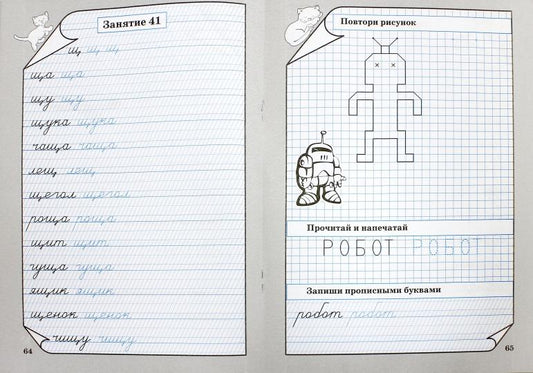 Занятие 41
щ щ щ
ща ща
щу щу
щука щука
чаща чаща
лещ лещ
щегол щегол
роща роща
щит щит
гуща гуща
ящик ящик
щенок щенок
чищу чищу
64
Повтори рисунок
Прочитай и напечатай
РОБОТ РОБОТ
Запиши прописными буквами
робот робот
65